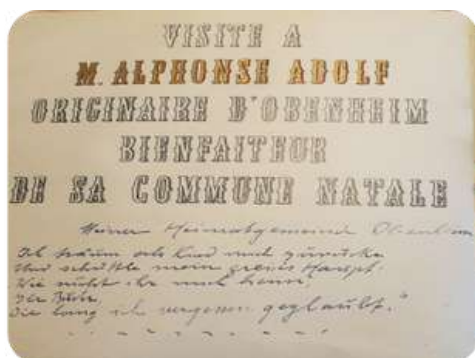 VISITE A
M. ALPHONSE ADOLF
ORIGINAIRE D'OBENHEIM
BIENFAITEUR
DE SA COMMUNE NATALE
Meiner Heimatgemeinde Obenheim
Ich träum als Kind mich zurücke
Und schüttle mein greises Haupt.
Wie sucht ihr mich heim,
Ihr Bilder,
Die lang ich vergessen geglaubt."